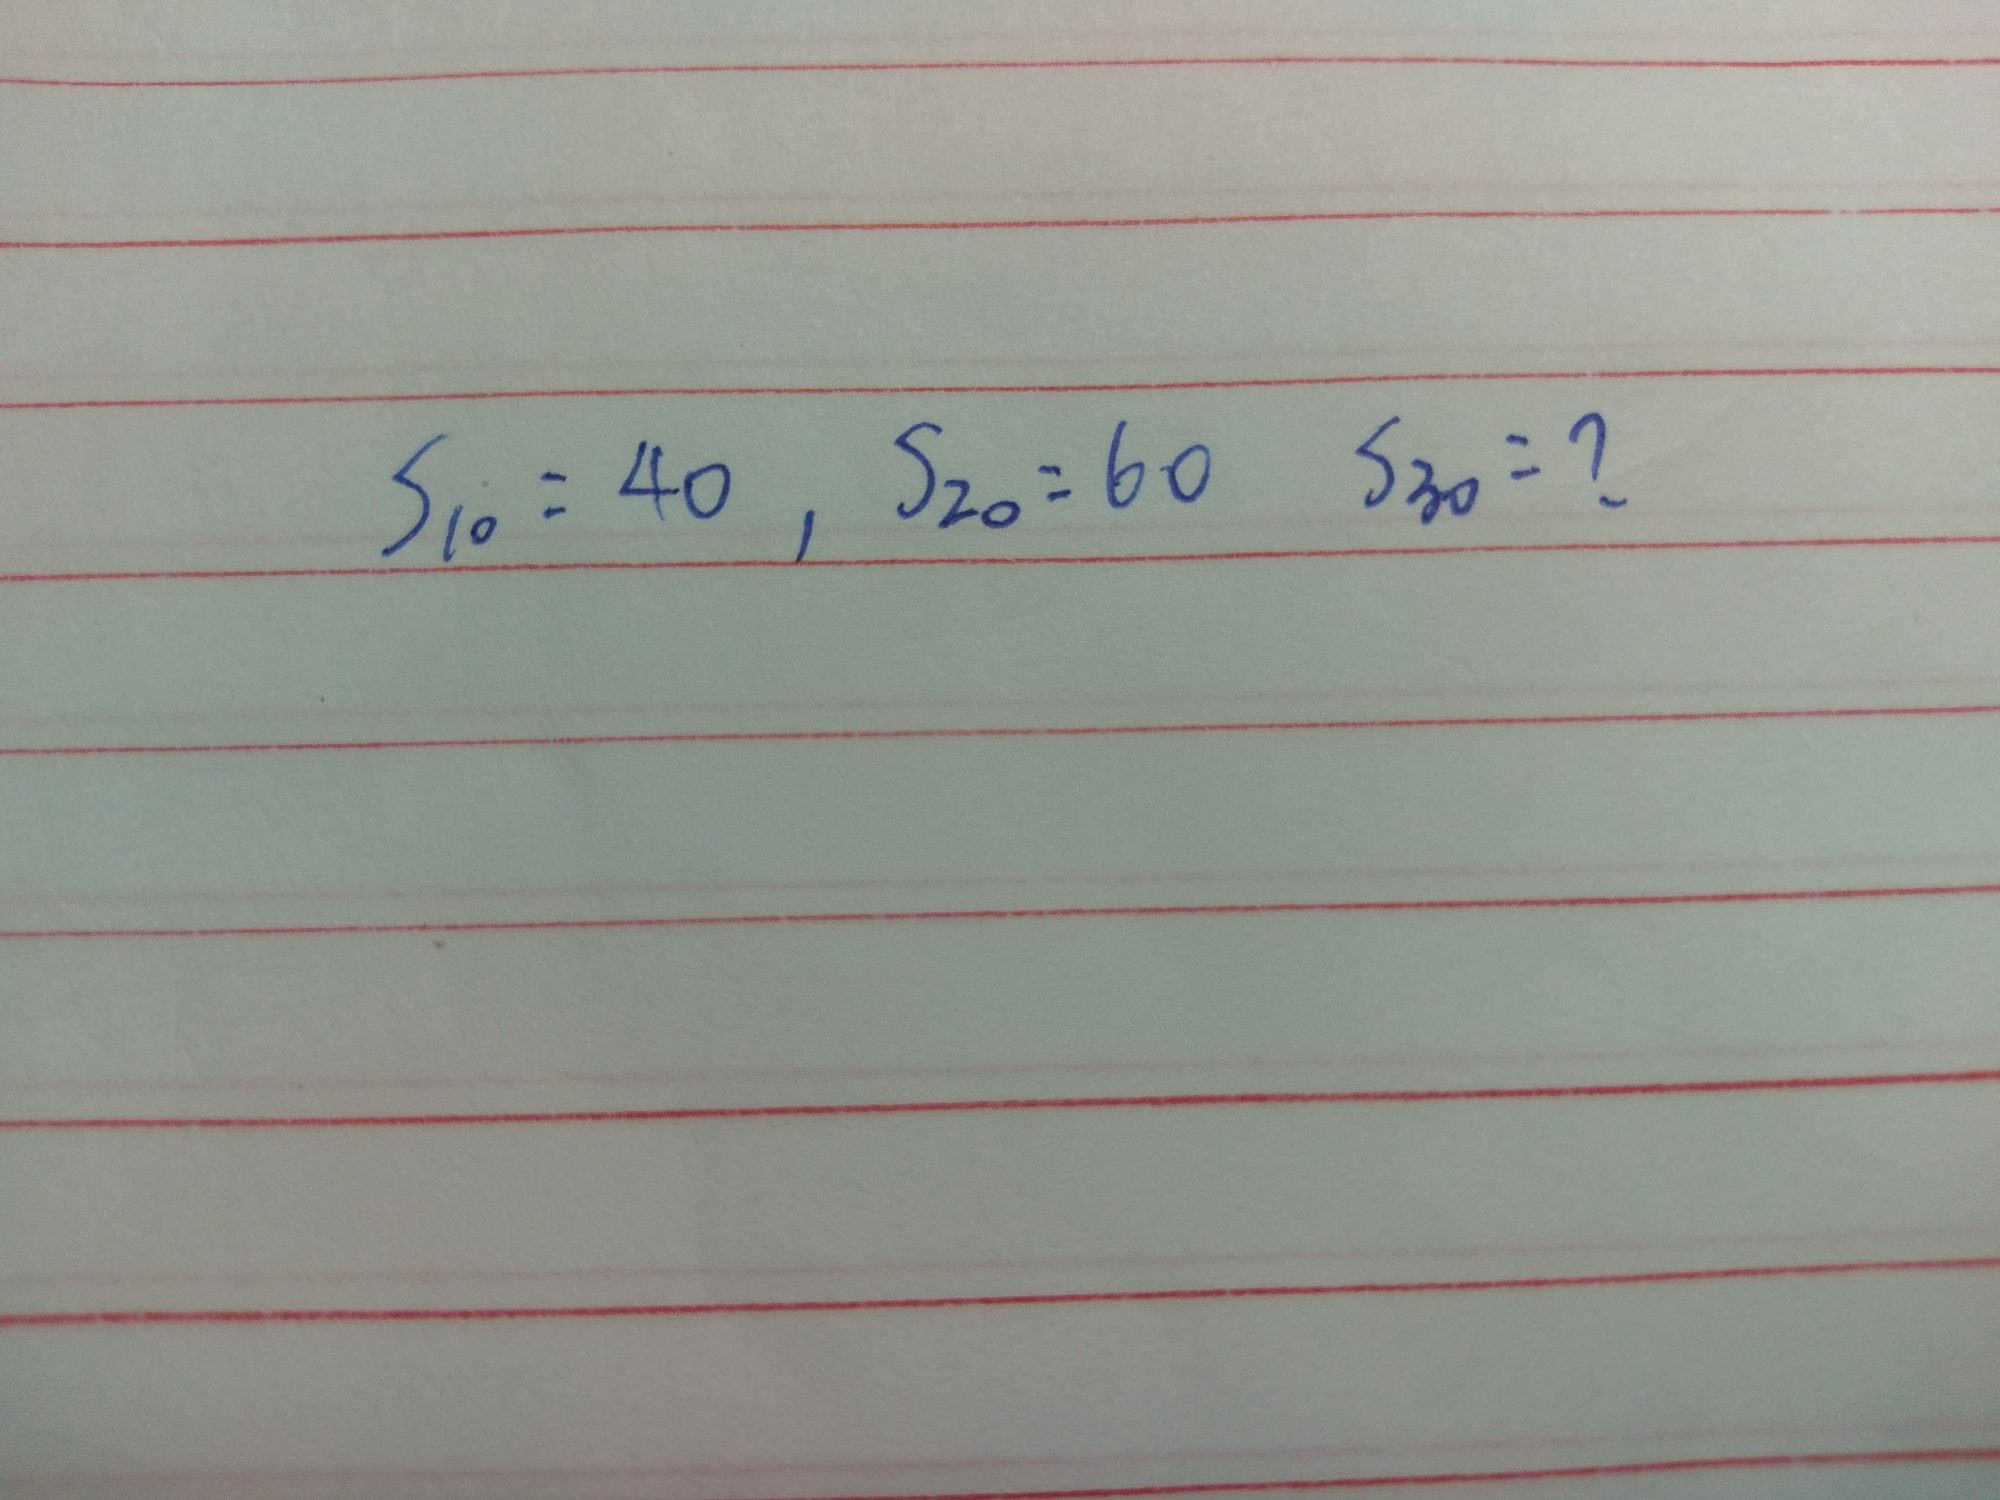 S₁₀ = 40 , S₂₀ = 60 S₃₀ = ?